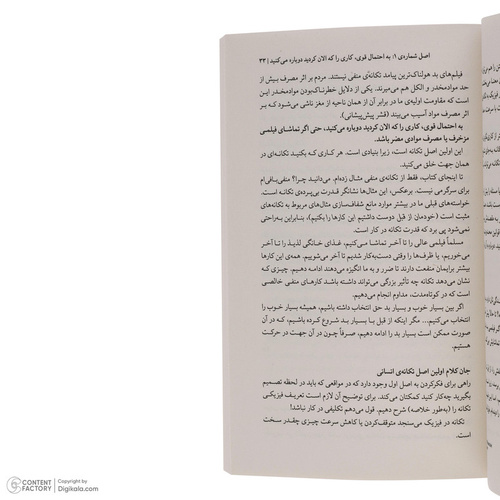 اصل شماره‌ی ۱: به احتمال قوی، کاری را که الان کردید دوباره می‌کنید | ۳۳
فیلم‌های بد هولناک‌ترین پیامد تکانه‌ی منفی نیستند. مردم بر اثر مصرف بیش از
حد موادمخدر و الکل هم می‌میرند. یکی از دلایل خطرناک‌بودن موادمخدر این
است که مقاومت اولیه‌ی ما در برابر آن از همان ناحیه از مغز ناشی می‌شود که بر
اثر مصرف مواد آسیب می‌بیند (قشر پیش‌پیشانی).
به احتمال قوی، کاری را که الان کردید دوباره می‌کنید، حتی اگر تماشای فیلمی
مزخرف یا مصرف موادی مضر باشد.
این اولین اصل تکانه است، زیرا بنیادی است. هر کاری که بکنید تکانه‌ای در
همان جهت خلق می‌کنید.
تا اینجای کتاب، فقط از تکانه‌ی منفی مثال زده‌ام. می‌دانید چرا؟ منفی‌بافی‌ام
برای سرگرمی نیست. برعکس، این مثال‌ها نشانگر قدرت بی‌پرده‌ی تکانه است.
خواسته‌های قبلی ما در بیشتر موارد مانع شفاف‌سازی مثال‌های مربوط به تکانه‌های
مثبت است (خودمان از قبل دوست داشتیم این کارها را بکنیم)، بنابراین به‌راحتی
نمی‌شود پی برد که قدرت تکانه در کار است.
مسلماً فیلمی عالی را تا آخر تماشا می‌کنیم، غذای خانگی لذیذ را تا آخر
می‌خوریم، یا ظرف‌ها را وقتی دست‌به‌کار شدیم تا آخر می‌شوییم. همه‌ی این کارها
بیشتر برایمان منفعت دارند تا ضرر و به ما انگیزه می‌دهند ادامه دهیم. چیزی که
نشان می‌دهد تکانه چه تأثیر بزرگی می‌تواند داشته باشد کارهای منفی خالصی
است که در کوتاه‌مدت، مداوم انجام می‌دهیم.
اگر بین بسیار خوب و بسیار بد حق انتخاب داشته باشیم، همیشه بسیار خوب را
انتخاب می‌کنیم... مگر اینکه از قبل با بسیار بد شروع کرده باشیم، که در آن
صورت ممکن است بسیار بد را ادامه دهیم، صرفاً چون در آن جهت در حرکت
هستیم.
جان کلام اولین اصل تکانه‌ی انسانی
راهی برای فکرکردن به اصل اول وجود دارد که در مواقعی که باید در لحظه تصمیم
بگیرید چه‌کار کنید کمکتان می‌کند. برای توضیح آن لازم است تعریف فیزیکی
تکانه را (به‌طور خلاصه) شرح دهیم. قول می‌دهم تکلیفی در کار نباشد!
تکانه در فیزیک می‌سنجد متوقف‌کردن یا کاهش سرعت چیزی چقدر سخت
است.
CONTENT FACTORY | Copyright by Digikala.com